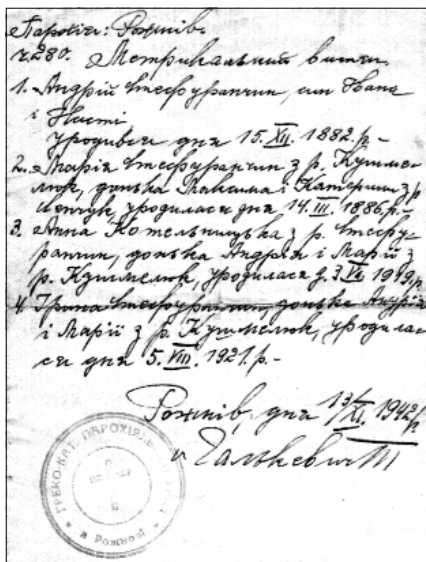 Парохія: Рожнів
ч. 280. Метрикальний витяг
1. Андрій Стефуранчин, син Івана
і Насті
уродився дня 15.XII. 1882.р.-
2. Марія Стефуранчин з р. Кушме-
люк, донька Максима і Катерини з р.
уродилася дня 14.III. 1886.р.-
3. Анна Котельницька з р. Стефу-
ранчин, донька Андрія і Марії з
р. Кушмелюк, уродилася д. 3. 1919.р.
4. Ірина Стефуранчин, донька Андрія
і Марії з р. Кушмелюк, уродила-
ся дня 5.VIII. 1921.р.-
Рожнів, дня 13/XI. 1942/р
Галькевич
ГРЕКО-КАТ. ПАРОХІЯЛЬ
в Рожнові